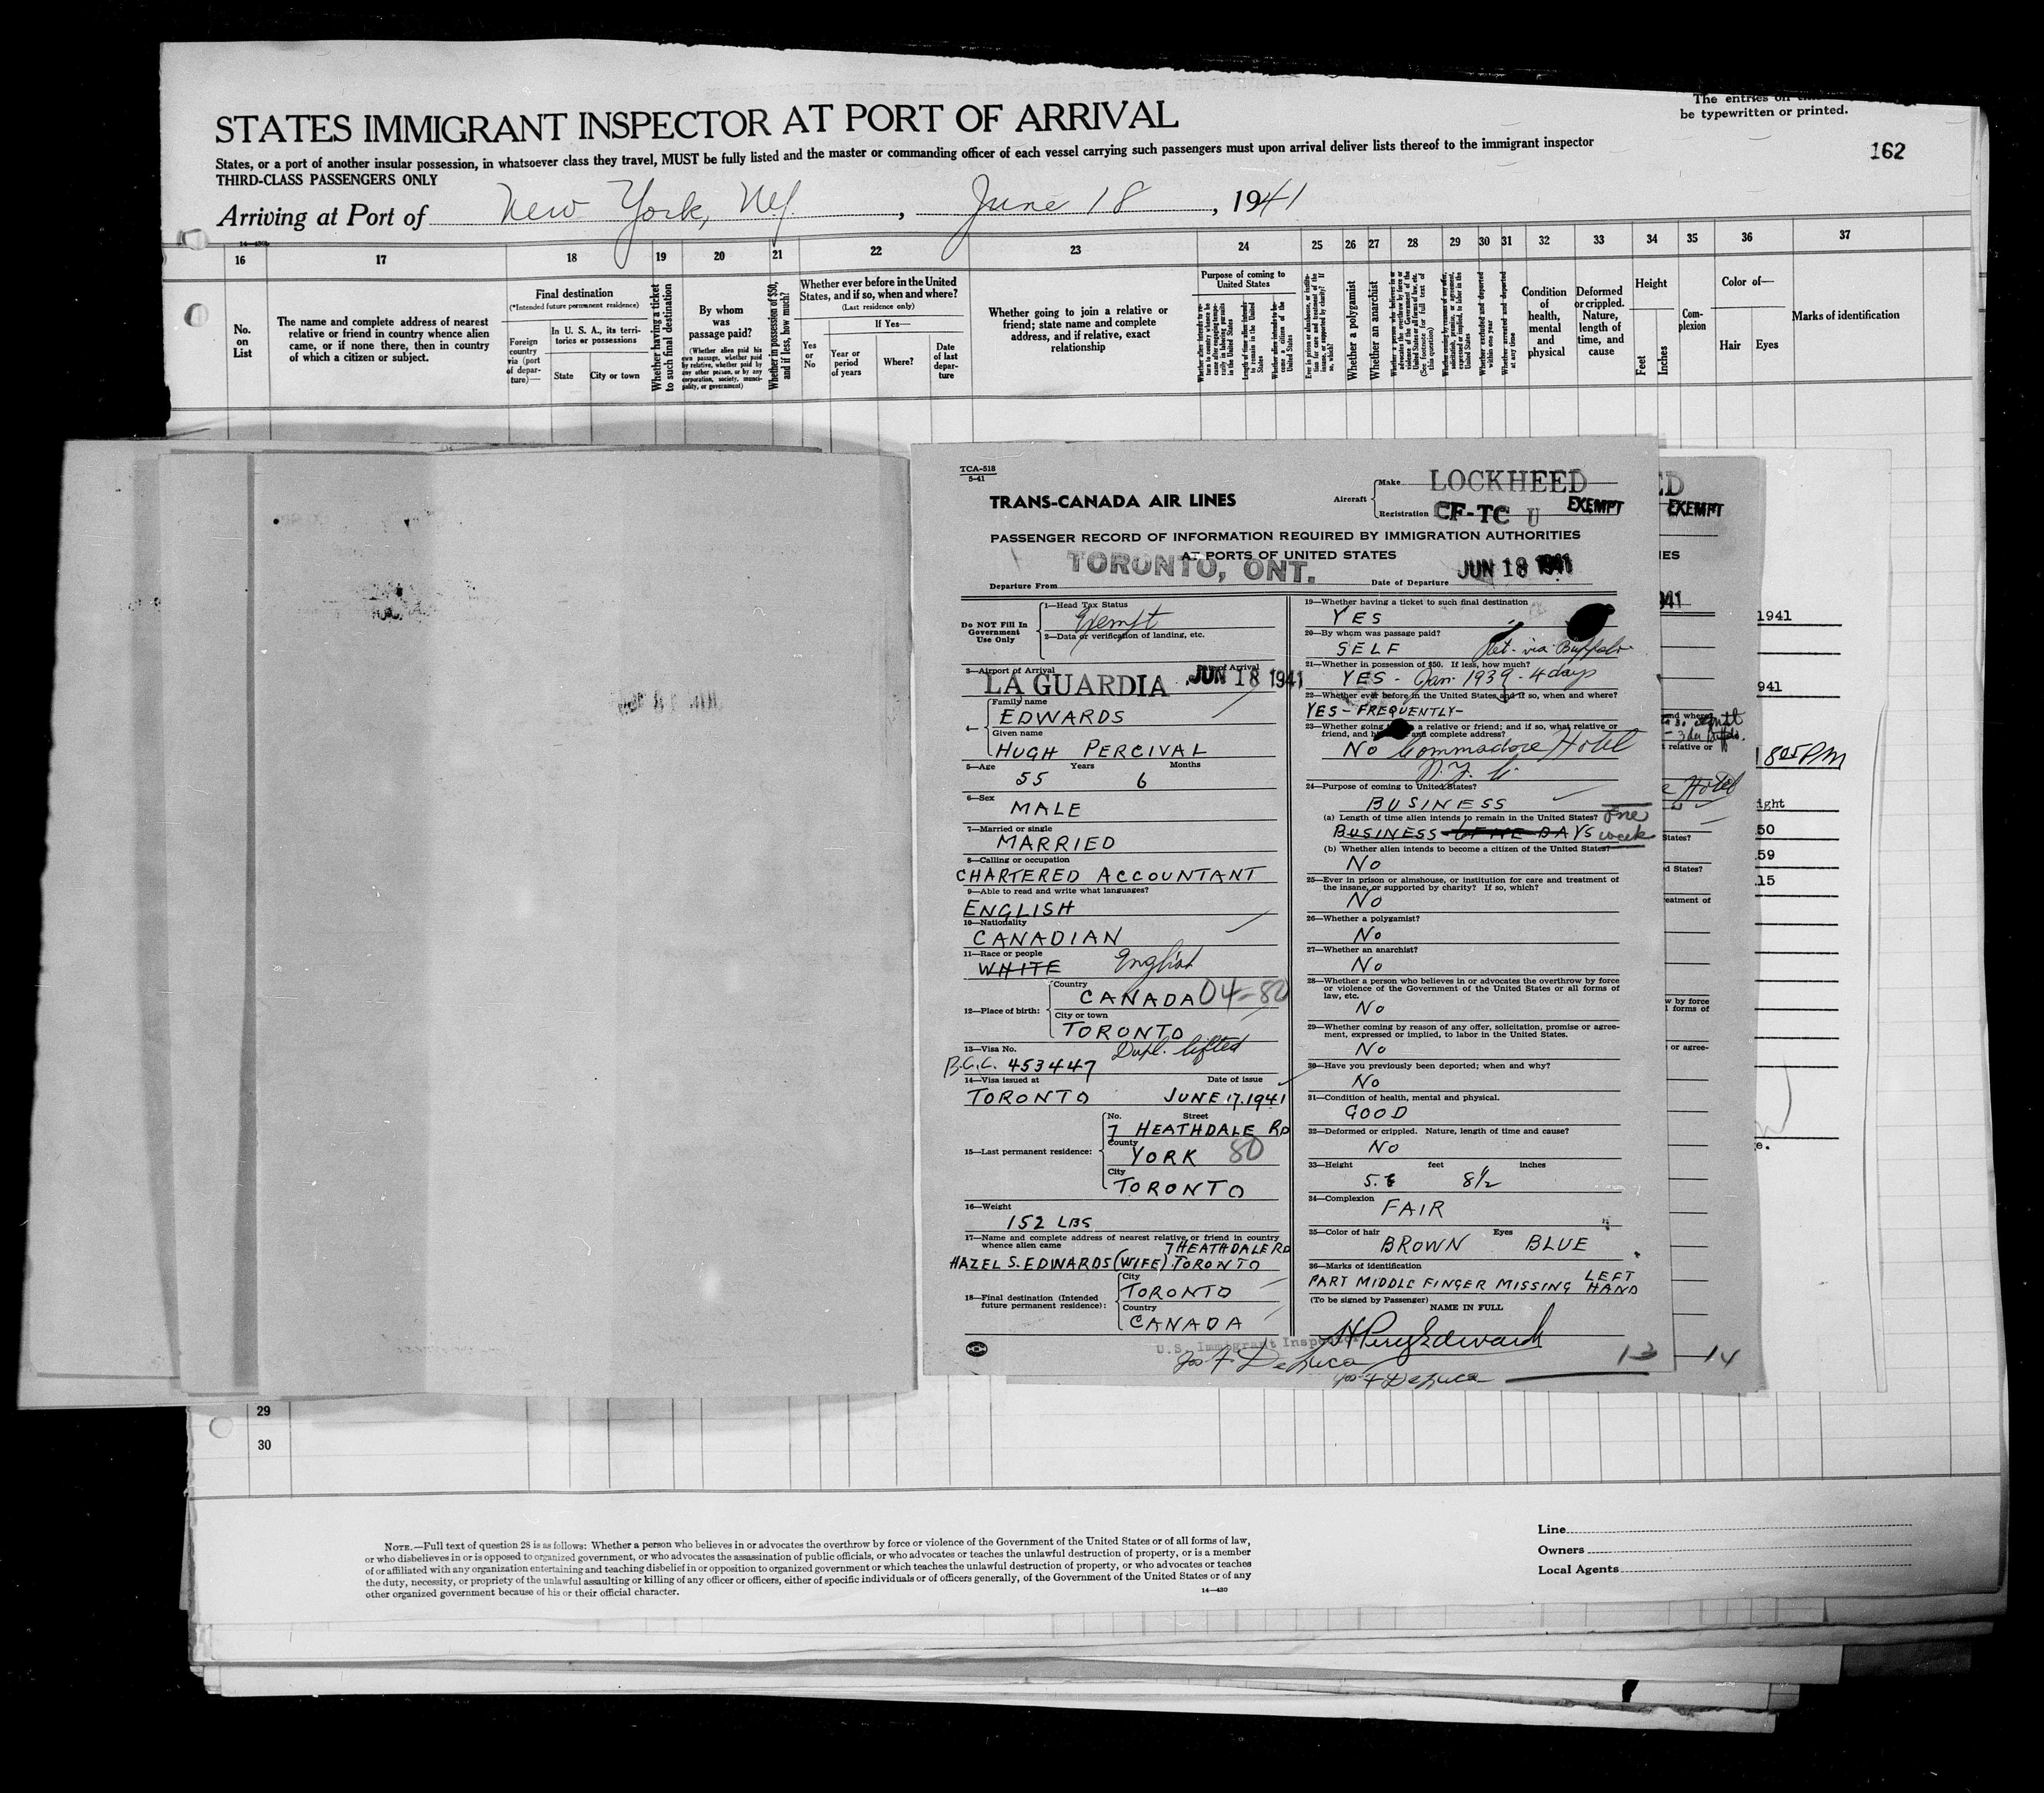 The entries on
be typewritten or printed.
STATES IMMIGRANT INSPECTOR AT PORT OF ARRIVAL
162
States, or a port of another insular possession, in whatsoever class they travel, MUST be fully listed and the master or commanding officer of each vessel carrying such passengers must upon arrival deliver lists thereof to the immigrant inspector
THIRD-CLASS PASSENGERS ONLY
Arriving at Port of New York, NY. , June 18 , 1941
14—430
16 17 18 19 20 21 22 23 24 25 26 27 28 29 30 31 32 33 34 35 36 37
No. on List
The name and complete address of nearest relative or friend in country whence alien came, or if none there, then in country of which a citizen or subject.
Final destination
(*Intended future permanent residence)
Foreign country via (port of departure)—
In U. S. A., its territories or possessions
State
City or town
Whether having a ticket to such final destination
By whom was passage paid?
(Whether alien paid his own passage, whether paid by relative, whether paid by any other person, or by any corporation, society, municipality, or government)
Whether in possession of $50, and if less, how much?
Whether ever before in the United States, and if so, when and where?
(Last residence only)
Yes or No
If Yes—
Year or period of years
Where?
Date of last departure
Whether going to join a relative or friend; state name and complete address, and if relative, exact relationship
Purpose of coming to United States
Whether a polygamist
Whether an anarchist
Condition of health, mental and physical
Deformed or crippled. Nature, length of time, and cause
Height
Feet
Inches
Complexion
Color of—
Hair
Eyes
Marks of identification
TCA-518
5-41
TRANS-CANADA AIR LINES
Aircraft
Make LOCKHEED
Registration CF-TC U EXEMPT
PASSENGER RECORD OF INFORMATION REQUIRED BY IMMIGRATION AUTHORITIES
AT PORTS OF UNITED STATES
Departure From TORONTO, ONT. Date of Departure JUN 18 1941
Do NOT Fill In Government Use Only
1—Head Tax Status
Exempt
2—Data or verification of landing, etc.
3—Airport of Arrival Date of Arrival
LA GUARDIA JUN 18 1941
4— Family name
EDWARDS
Given name
HUGH PERCIVAL
5—Age Years Months
55 6
6—Sex
MALE
7—Married or single
MARRIED
8—Calling or occupation
CHARTERED ACCOUNTANT
9—Able to read and write what languages?
ENGLISH
10—Nationality
CANADIAN
11—Race or people
WHITE English
12—Place of birth:
Country
CANADA 04-80
City or town
TORONTO
13—Visa No. Dupl. lifted
B.C.C. 453447
14—Visa issued at Date of issue
TORONTO JUNE 17.1941
15—Last permanent residence:
No. Street
7 HEATHDALE RD
County
YORK 80
City
TORONTO
16—Weight
152 LBS
17—Name and complete address of nearest relative or friend in country
whence alien came 7 HEATHDALE RD
HAZEL S. EDWARDS (WIFE) TORONTO
18—Final destination (Intended future permanent residence):
City
TORONTO
Country
CANADA
19—Whether having a ticket to such final destination
YES
20—By whom was passage paid?
SELF Ret. via Buffalo
21—Whether in possession of $50. If less, how much?
YES - Jan. 1939 - 4 days
22—Whether ever before in the United States and if so, when and where?
YES - FREQUENTLY -
23—Whether going a relative or friend; and if so, what relative or
friend, and and complete address?
No Commodore Hotel
N.Y. C.
24—Purpose of coming to United States?
BUSINESS
(a) Length of time alien intends to remain in the United States? One week
BUSINESS DAYS
(b) Whether alien intends to become a citizen of the United States?
No
25—Ever in prison or almshouse, or institution for care and treatment of
the insane, or supported by charity? If so, which?
No
26—Whether a polygamist?
No
27—Whether an anarchist?
No
28—Whether a person who believes in or advocates the overthrow by force
or violence of the Government of the United States or all forms of
law, etc.
No
29—Whether coming by reason of any offer, solicitation, promise or agree-
ment, expressed or implied, to labor in the United States.
No
30—Have you previously been deported; when and why?
No
31—Condition of health, mental and physical.
GOOD
32—Deformed or crippled. Nature, length of time and cause?
No
33—Height feet inches
5. 8½
34—Complexion
FAIR
35—Color of hair Eyes
BROWN BLUE
36—Marks of identification
PART MIDDLE FINGER MISSING LEFT HAND
(To be signed by Passenger)
NAME IN FULL
H Percy Edwards
U.S. Immigrant Inspector
Jos F DeLuca
13
Jos F DeLuca
14
EXEMPT
1941
941
8 05 PM
Hotel
ight
50
59
15
States?
ed States?
eatment of
w by force
forms of
or agree-
29
30
NOTE.—Full text of question 28 is as follows: Whether a person who believes in or advocates the overthrow by force or violence of the Government of the United States or of all forms of law,
or who disbelieves in or is opposed to organized government, or who advocates the assassination of public officials, or who advocates or teaches the unlawful destruction of property, or is a member
of or affiliated with any organization entertaining and teaching disbelief in or opposition to organized government or which teaches the unlawful destruction of property, or who advocates or teaches
the duty, necessity, or propriety of the unlawful assaulting or killing of any officer or officers, either of specific individuals or of officers generally, of the Government of the United States or of any
other organized government because of his or their official character.
14—430
Line
Owners
Local Agents